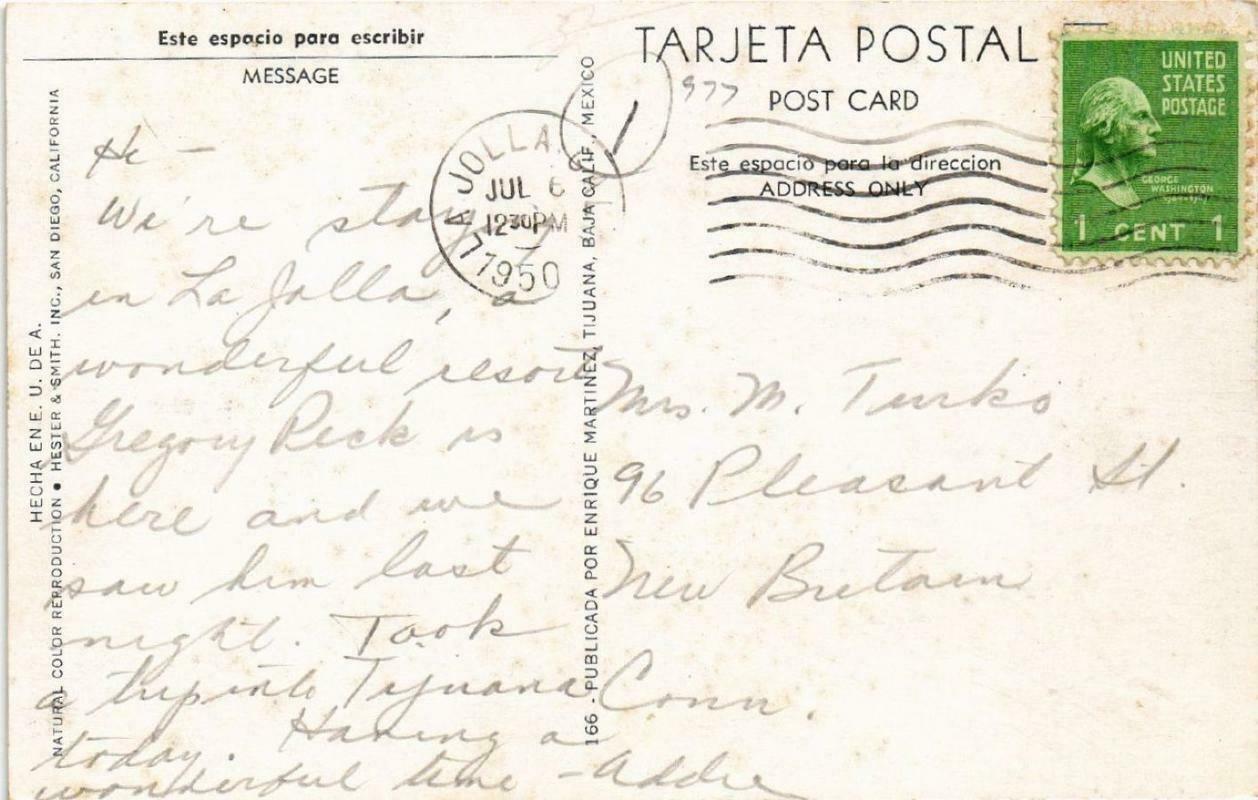 Este espacio para escribir
MESSAGE
Hi –
We're stay
in La Jolla, a
wonderful resort
Gregory Peck is
here and we
saw him last
night. Took
a trip into Tijuana
today. Having a
wonderful time – Addie
HECHA EN E. U. DE A.
NATURAL COLOR REPRODUCTION • HESTER & SMITH. INC., SAN DIEGO, CALIFORNIA
166 - PUBLICADA POR ENRIQUE MARTINEZ, TIJUANA, BAJA CALIF., MEXICO
LA JOLLA
JUL 6
12 30 PM
1950
1
977
TARJETA POSTAL
POST CARD
Este espacio para la direccion
ADDRESS ONLY
UNITED
STATES
POSTAGE
GEORGE
WASHINGTON
1 CENT 1
Mrs. M. Turko
96 Pleasant St.
New Britain
Conn.